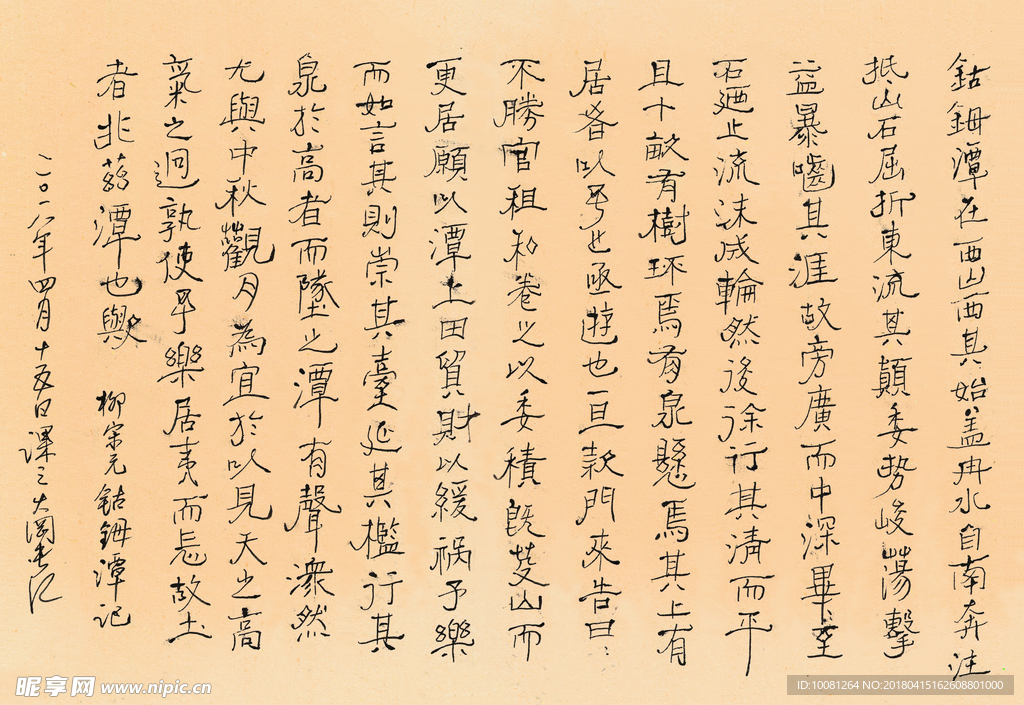 鈷鉧潭在西山西其始盖冉水自南奔注
抵山石屈折東流其顛委势峻蕩擊
益暴嚙其涯故旁廣而中深畢至
石迺止流沫成輪然後徐行其清而平
且十畝有樹环焉有泉懸焉其上有
居者以予之亟遊也一旦款門來告曰：
不勝官租和卷之以委積既芟山而
更居願以潭上田貿財以緩祸予樂
而如言其則崇其臺延其檻行其
泉於高者而墜之潭有聲潀然
尤與中秋觀月為宜於以見天之高
氣之迥孰使予樂居夷而忘故土
者非兹潭也歟 柳宗元鈷鉧潭記
二〇一八年四月十五日
昵享网 www.nipic.cn
ID:10081264 NO:20180415162608801000